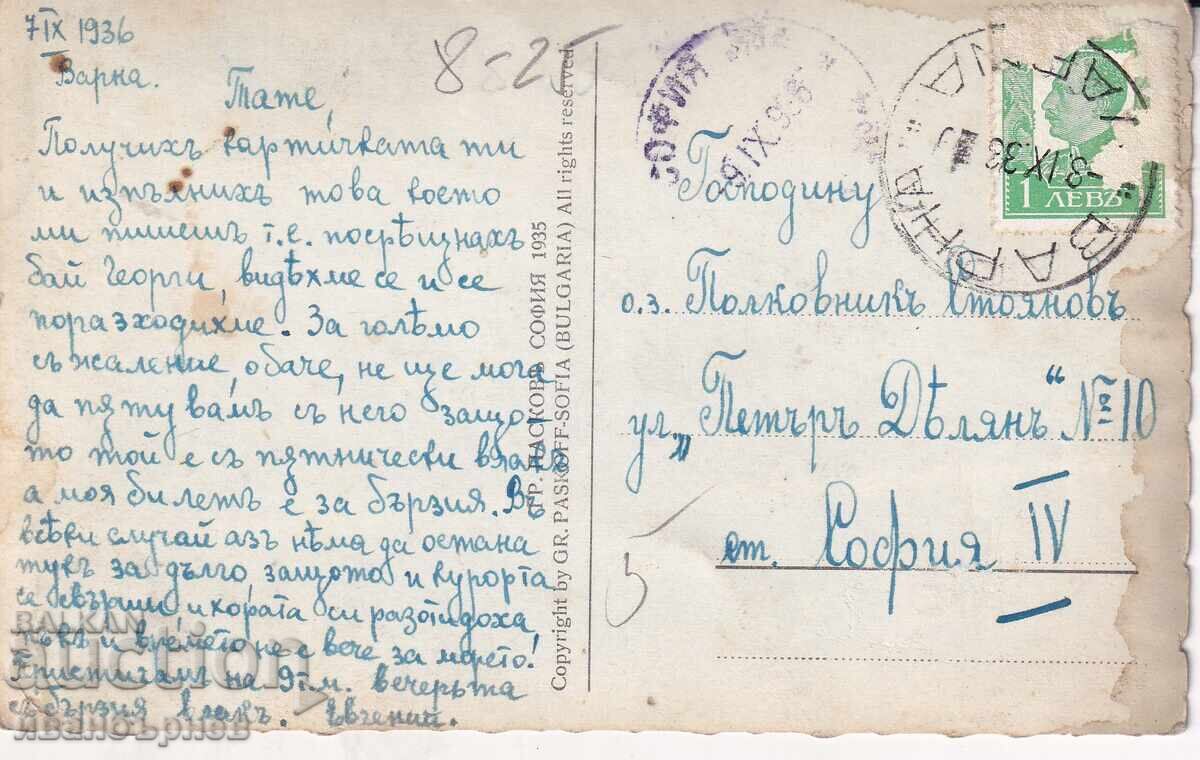 7 IX 1936
Варна.
Тате,
Получихъ картичката ти
и изпълнихъ това което
ми пишешъ т.е. посрѣщнахъ
бай Георги, видѣхме се и се
поразходихме. За голѣмо
съжаление, обаче, не ще мога
да пѫтувамъ съ него защо-
то той е съ пѫтнически влакъ
а моя билетъ е за бързия. Въ
всѣки случай азъ нѣма да остана
тукъ за дълго, защото и курорта
се свърши и хората си разотидоха,
пъкъ и времето не е вече за морето!
Пристигамъ на 9 т.м. вечерьта
съ бързия влакъ. Евгений.
8-25
ГР. ПАСКОВЪ СОФИЯ 1935
Copyright by GR. PASKOFF-SOFIA (BULGARIA) All rights reserved
СОФИЯ
9.IX.936
ВАРНА
VARNA
-8.IX.36
1 ЛЕВЪ
Господину
о.з. Полковникъ Стояновъ
ул. „Петъръ Дѣлянъ“ № 10
ст. София IV
5
BALKAN
auction
ИваноЪрнев